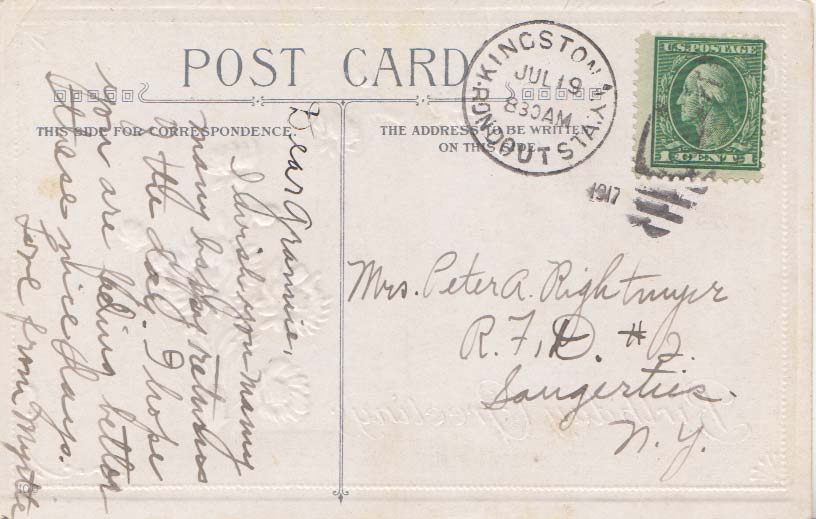 POST CARD
THIS SIDE FOR CORRESPONDENCE.
THE ADDRESS TO BE WRITTEN
ON THIS SIDE.
KINGSTON, N.Y.
JUL 19
830 AM
RONDOUT STA.
1917
U.S. POSTAGE
1 CENT 1
Dear Grannie,
I wish you many
many happy returns
of the day. I hope
you are feeling better
these nice days.
Love from Myrtle
Mrs. Peter A. Rightmyer
R. F. D. # 2.
Saugerties.
N. Y.
Birthday Greeting